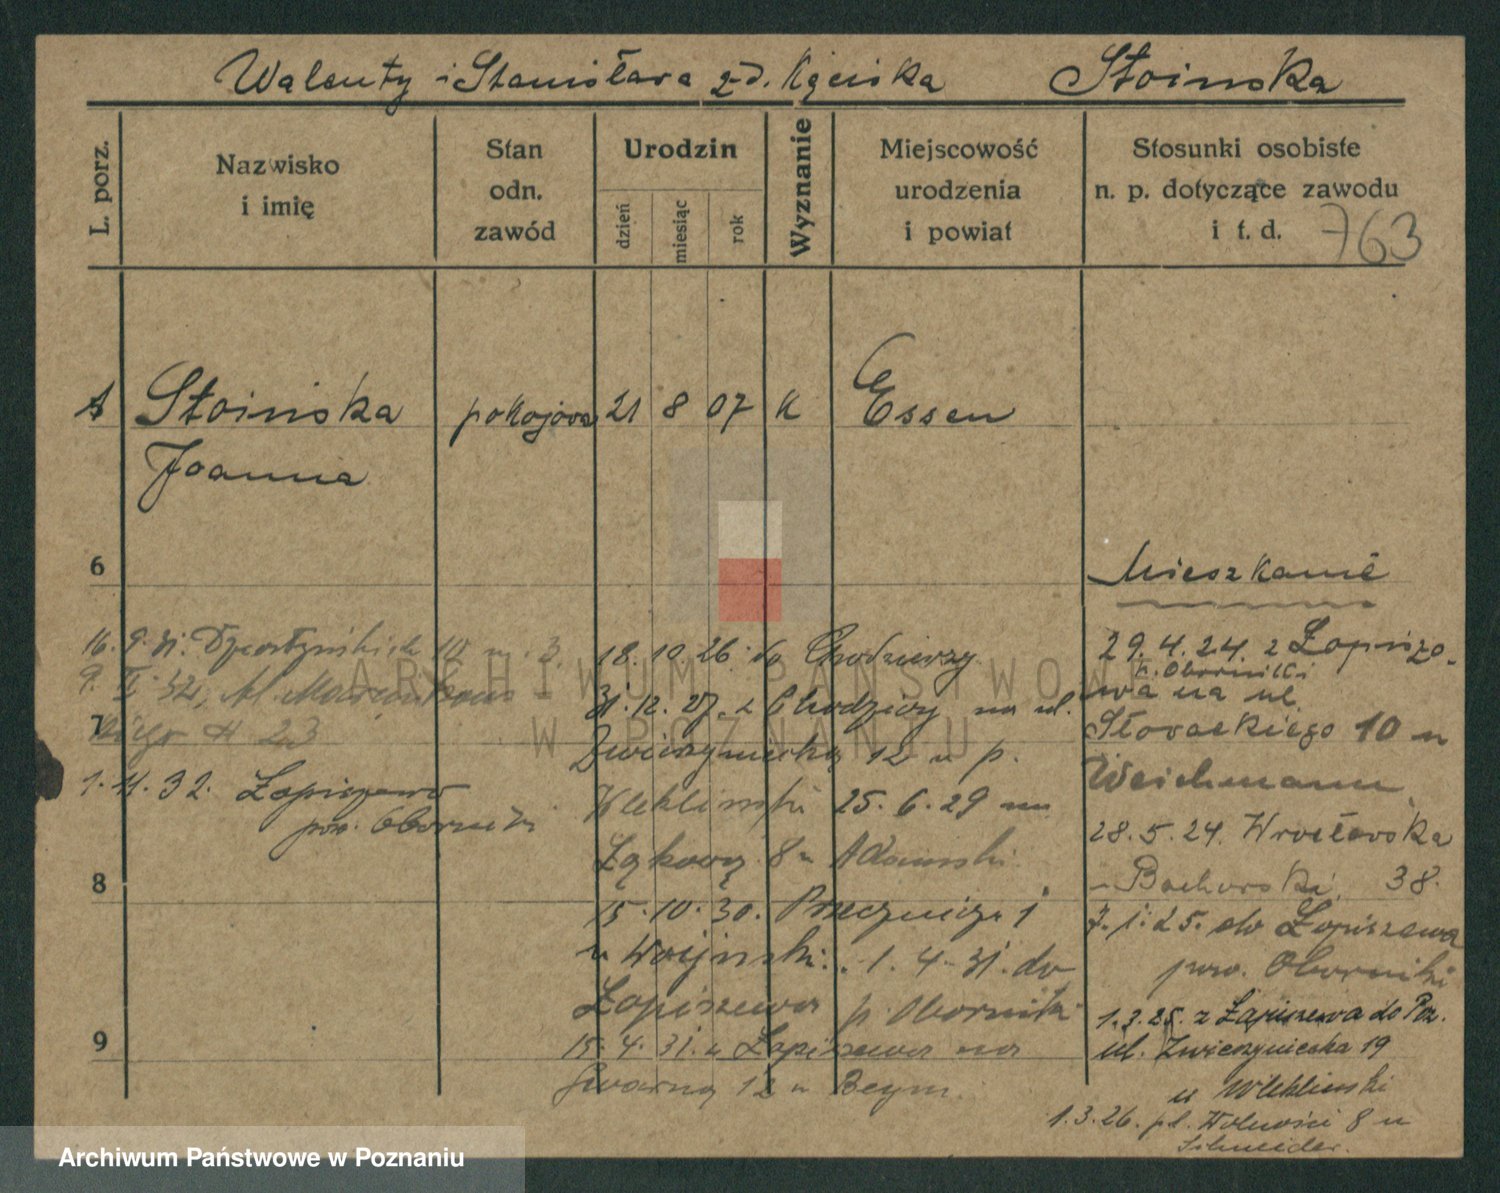 Walenty i Stanisława z d. Kęcińska Stoinska
L. porz.
Nazwisko
i imię
Stan
odn.
zawód
Urodzin
dzień
miesiąc
rok
Wyznanie
Miejscowość
urodzenia
i powiat
Stosunki osobiste
n. p. dotyczące zawodu
i t. d.
763
Stoinska pokojowa 21 8 07 K Essen
Joanna
6
Mieszkanie
16. 9. 31. 10 m. 3.
9. II. 32, Al. Marcinkows-
kiego 23
7
1. 4. 32. Łopiszewo
pow. Oborniki
8
9
18. 10. 26. do Chodzieży
31. 12. 27. z Chodzieży na ul.
Zwierzyniecką 12 u p.
Wleklinski 25. 6. 29 na
Łąkową 8 u Adamski
15. 10. 30. Przecznica 1
u Wojinski. 1. 4. 31. do
Łopiszewa p. Oborniki
15. 4. 31. z Łopiszewa na
Gwarną 12 u Beym.
29. 4. 24. z Łopiszo-
p. Oborniki
wa na ul.
Słowackiego 10 u
Weichmann
28. 5. 24. Wrocławska
- Bachorski, 38.
7. 1. 25. do Łopiszewa
pow. Oborniki
1. 3. 25. z Łopiszewa do Poz.
ul. Zwierzyniecka 19
u Wleklinski
1. 3. 26. pl. Wolności 8 u
Schneider.
ARCHIWUM PAŃSTWOWE
W POZNANIU
Archiwum Państwowe w Poznaniu